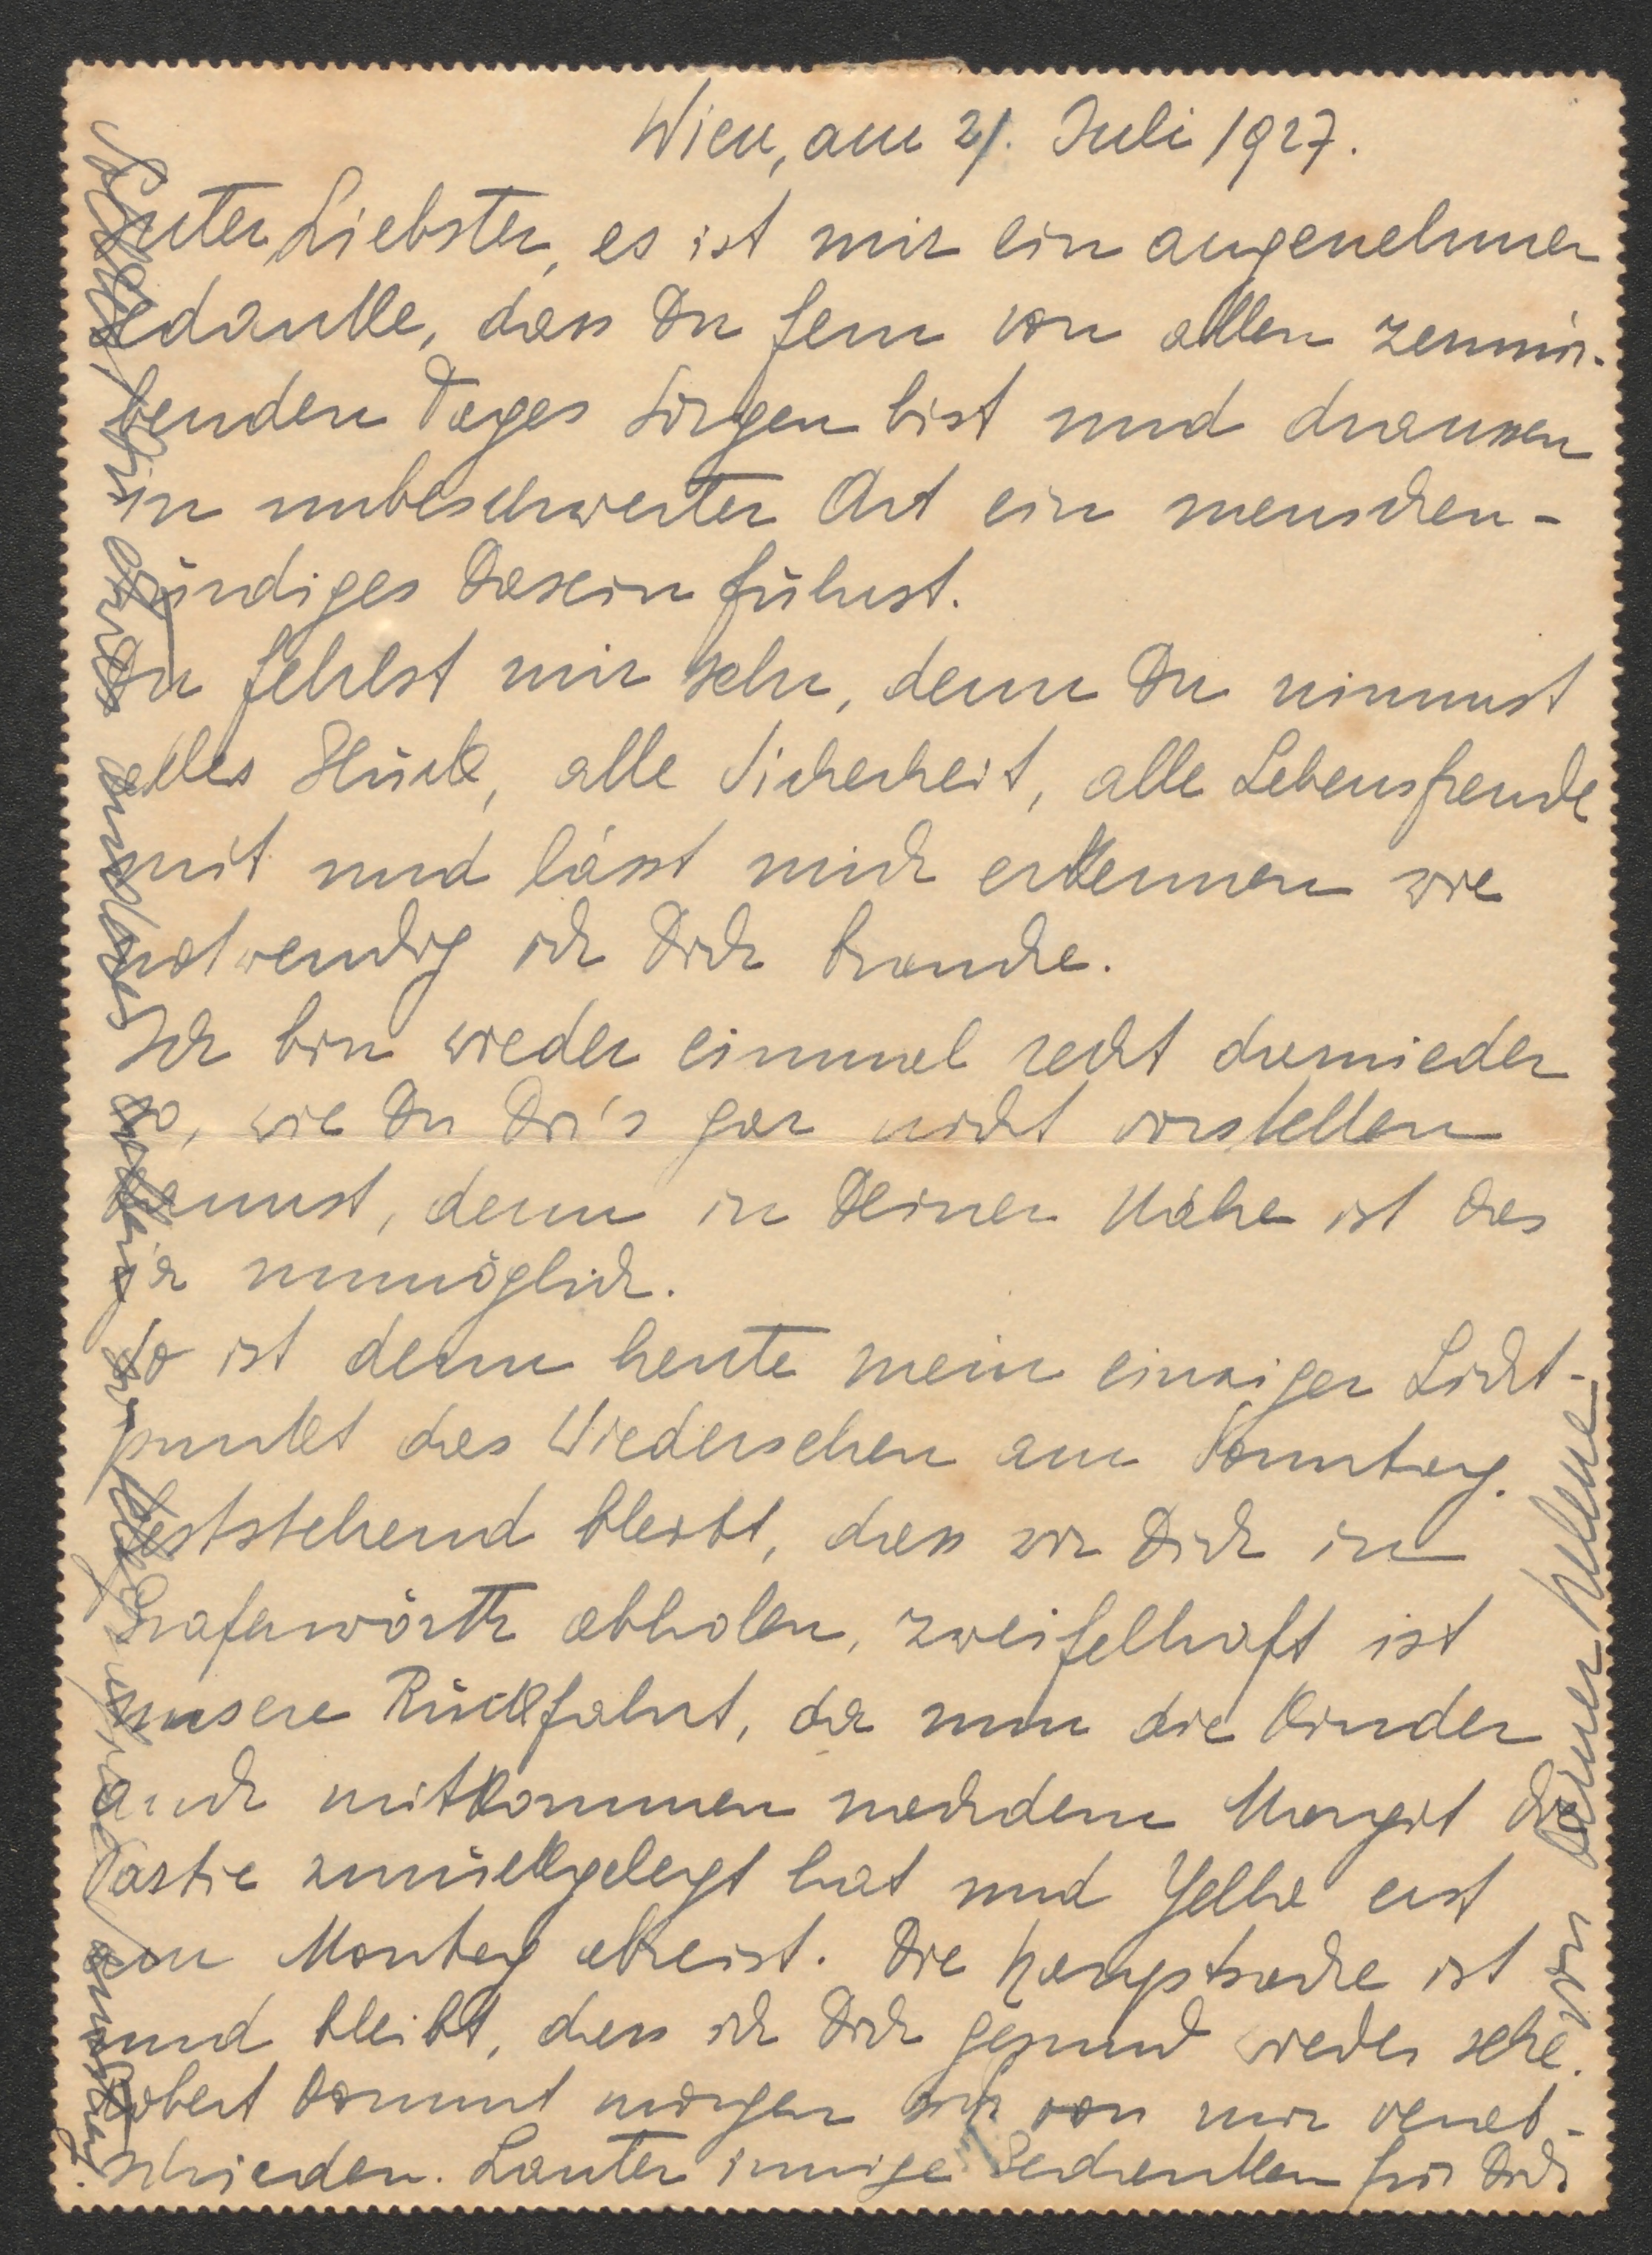 Wien, am 21. Juli 1927.
Guter Liebster, es ist mir ein angenehmer
Gedanke, dass Du fern von allen zermür-
benden Tages Sorgen bist und draussen
in unbeschwerter Art ein menschen-
würdiges Dasein führst.
Du fehlst mir sehr, denn Du nimmst
alles Glück, alle Sicherheit, alle Lebensfreude
mit und lässt mich erkennen wie
notwendig ich Dich brauche.
Ich bin wieder einmal recht darnieder
so, wie Du Dir's gar nicht vorstellen
kannst, denn in Deiner Nähe ist das
ja unmöglich.
So ist denn heute mein einziger Licht-
punkt das Wiedersehen am Sonntag.
Feststehend bleibt, dass wir Dich in
Grafenwörth abholen, zweifelhaft ist
unsere Rückfahrt, da nun die Kinder
auch mitkommen nachdem Margit die
Tastie zurückgelegt hat und Yella erst
am Montag abreist. Die Hauptsache ist
und bleibt, dass ich Dich gesund wieder sehe.
Robert kommt morgen sich von mir verab-
schieden. Lauter innige Gedanken für Dich
von Deiner Helene